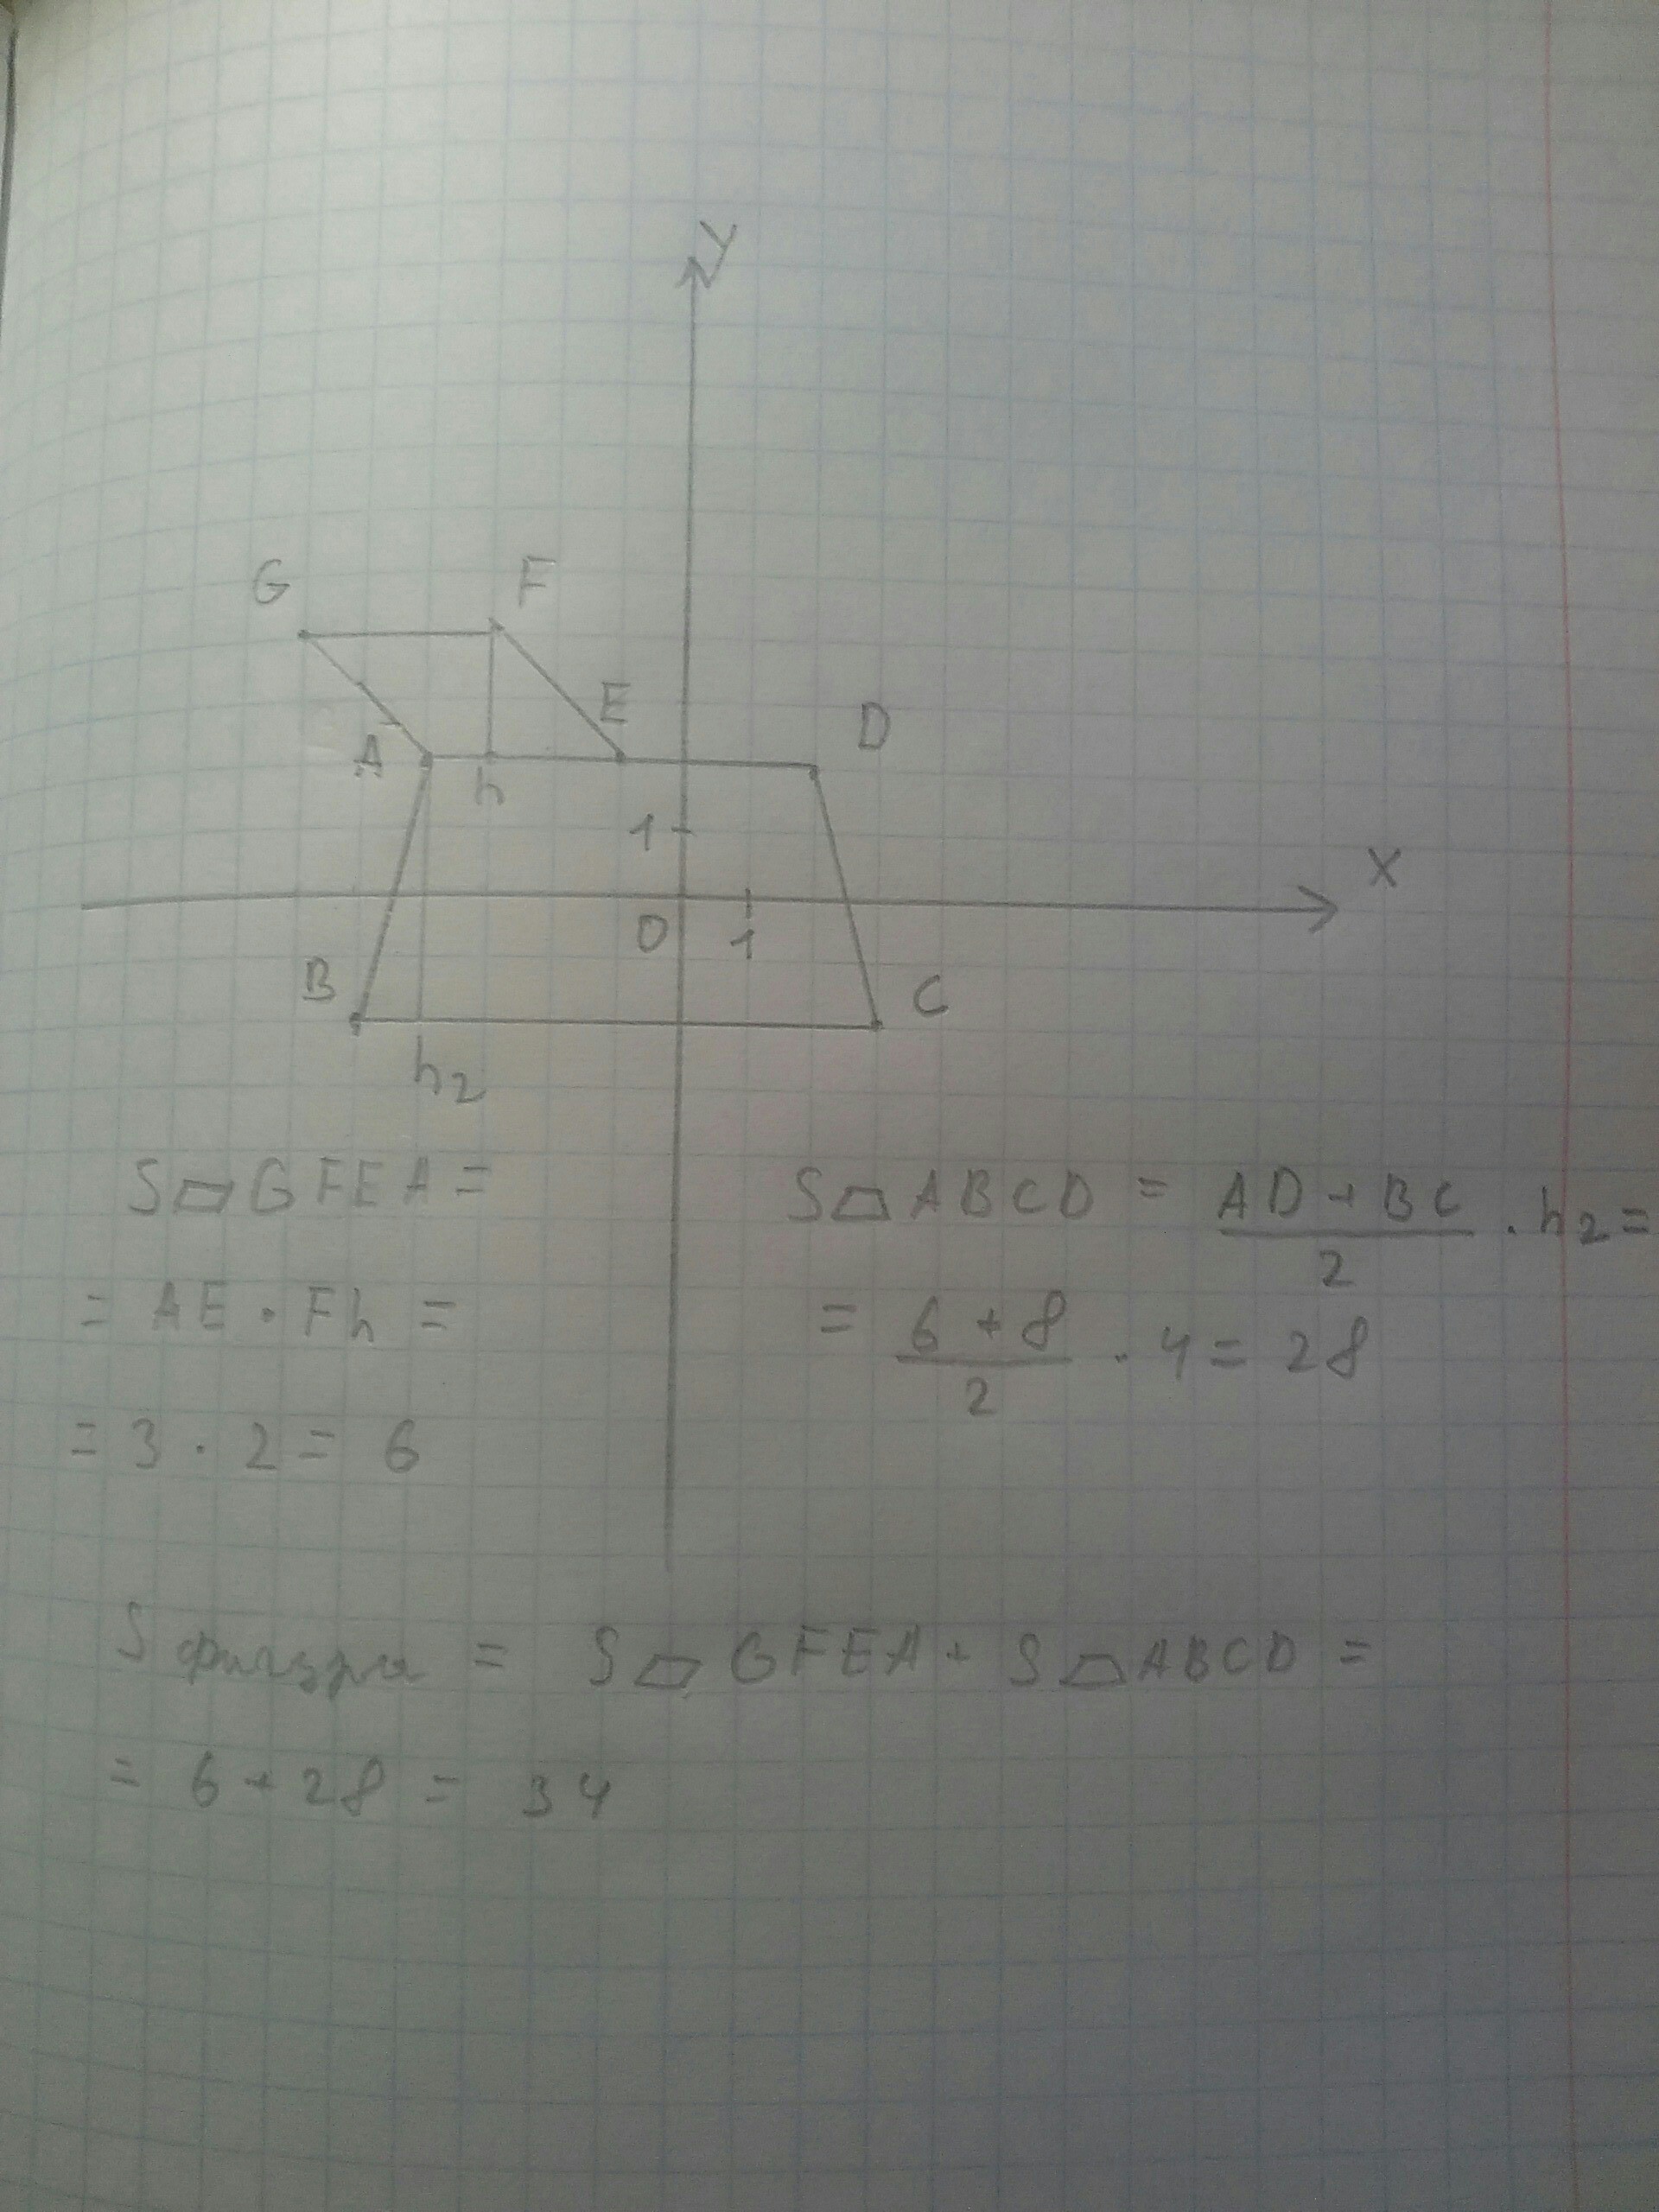 y
G F
E
A D
h
1
x
0 1
B C
h₂
S▱GFEA =
= AE · Fh =
= 3 · 2 = 6
S⏢ABCD = (AD + BC)/2 · h₂ =
= (6 + 8)/2 · 4 = 28
S фигуры = S▱GFEA + S⏢ABCD =
= 6 + 28 = 34